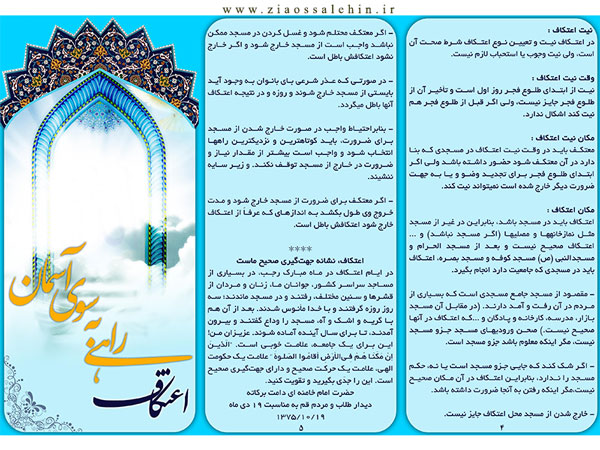 www.ziaossalehin.ir
نیت اعتکاف :
در اعتکاف نیت و تعیین نوع اعتکاف شرط صحت آن
است، ولی نیت وجوب یا استحباب لازم نیست.
وقت نیت اعتکاف :
نیت از ابتدای طلوع فجر روز اول است و تأخیر آن از
طلوع فجر جایز نیست، ولی اگر قبل از طلوع فجر هم
نیت کند اشکال ندارد.
مکان نیت اعتکاف :
معتکف باید در وقت نیت اعتکاف در مسجدی که بنا
دارد در آن معتکف شود حضور داشته باشد ولی اگر
ابتدای طلوع فجر برای تجدید وضو و یا به جهت
ضرورت دیگر خارج شده است نمیتواند نیت کند.
مکان اعتکاف :
اعتکاف باید در مسجد باشد، بنابراین در غیر از مسجد
مثل نمازخانهها و مصلیها (اگر مسجد نباشد) و ...
اعتکاف صحیح نیست و بعد از مسجد الحرام و
مسجدالنبی (ص) مسجد کوفه و مسجد بصره، اعتکاف
باید در مسجدی که جامعیت دارد انجام بگیرد.
- مقصود از مسجد جامع مسجدی است که بسیاری از
مردم در آن رفت و آمد دارند. (در مقابل آن مسجد
بازار، مدرسه، کارخانه و پادگان و ...که اعتکاف در آنها
صحیح نیست.) صحن ورودیهای مسجد جزو مسجد
نیست، مگر اینکه معلوم باشد جزو مسجد است.
- اگر شک کند که جایی جزو مسجد است یا نه، حکم
مسجد را ندارد، بنابراین اعتکاف در آن مکان صحیح
نیست،مگر اینکه رفتن به آنجا ضرورت داشته باشد.
- خارج شدن از مسجد محل اعتکاف جایز نیست.
۴
- اگر معتکف محتلم شود و غسل کردن در مسجد ممکن
نباشد واجب است از مسجد خارج شود و اگر خارج
نشود اعتکافش باطل است.
- در صورتی که عذر شرعی بای بانوان به وجود آید
بایستی از مسجد خارج شوند و روزه و در نتیجه اعتکاف
آنها باطل میگردد.
- بنابراحتیاط واجب در صورت خارج شدن از مسجد
برای ضرورت، باید کوتاهترین و نزدیکترین راهها
انتخاب شود و واجب است بیشتر از مقدار نیاز و
ضرورت در خارج از مسجد توقف نکند. و زیر سایه
ننشیند.
- اگر معتکف برای ضرورت از مسجد خارج شود و مدت
خروج وی طول بکشد به اندازهای که عرفاً از اعتکاف
خارج شود اعتکافش باطل است.
****
اعتکاف، نشانه جهت‌گیری صحیح ماست
در ایام اعتکاف در ماه مبارک رجب، در بسیاری از
مساجد سراسر کشور، جوانان ما، زنان و مردان از
قشرها و سنین مختلف، رفتند و در مسجد ماندند؛ سه
روز روزه گرفتند و با خدا مأنوس شدند. بعد از آن هم
با گریه و اشک و آه، مسجد را وداع گفتند و بیرون
آمدند، تا برای سال آینده آماده شوند. عزیزان من!
این برای یک جامعه، علامت خوبی است. "الَّذینَ
إِن مَکَّنّا هُم فِی الأَرضِ أَقامُوا الصَّلوةَ" علامت یک حکومت
الهی، علامت یک حرکت صحیح و دارای جهت‌گیری صحیح
است. این را جدی بگیرید و تقویت کنید.
حضرت امام خامنه ای دامت برکاته
دیدار طلاب و مردم قم به مناسبت ۱۹ دی ماه
۱۳۷۵/۱۰/۱۹
۵
راهی به
سوی آسمان
اعتکاف